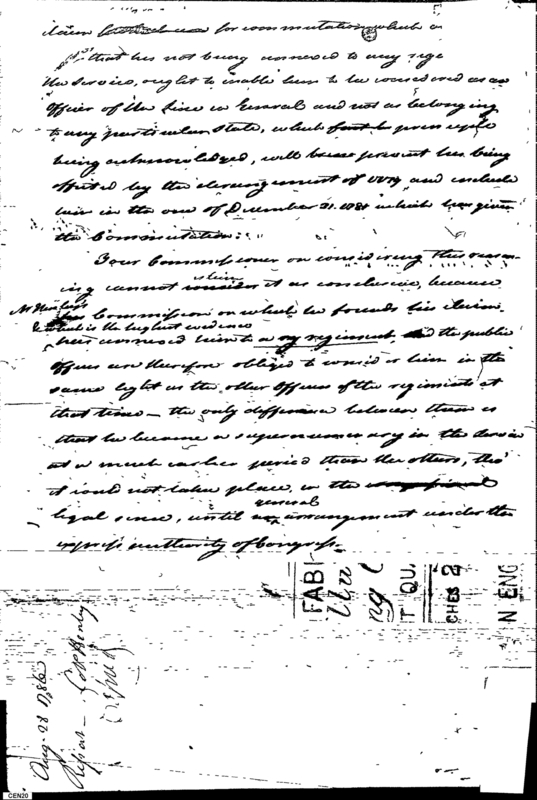 claim for commutation which
that his not being annexed to any
the service, ought to enable him to be considered as an
Officer of the Line in General and not as belonging
to any particular State, which principle
being acknowledged, will prevent his being
affected by the derangement of and include
him in the one of December 31. 1781 which has given
the Commutation.
Your Commissioner on considering this reason-
ing cannot view it as conclusive, because
Mr Henley's Commission on which he founds his claim
& which is the highest evidence
has annexed him to a regiment, and the public
Offices are therefore obliged to consider him in the
same light as the other Officers of the regiments at
that time — the only difference between them is
that he became a supernumerary in the service
at a much earlier period than the others, tho'
it could not take place, in the
legal sense, until general arrangement under the
express authority of Congress.
FABI
T QU.
CHES 2
N ENG
Aug. 28 1786
Report — Col Henley
CEN20